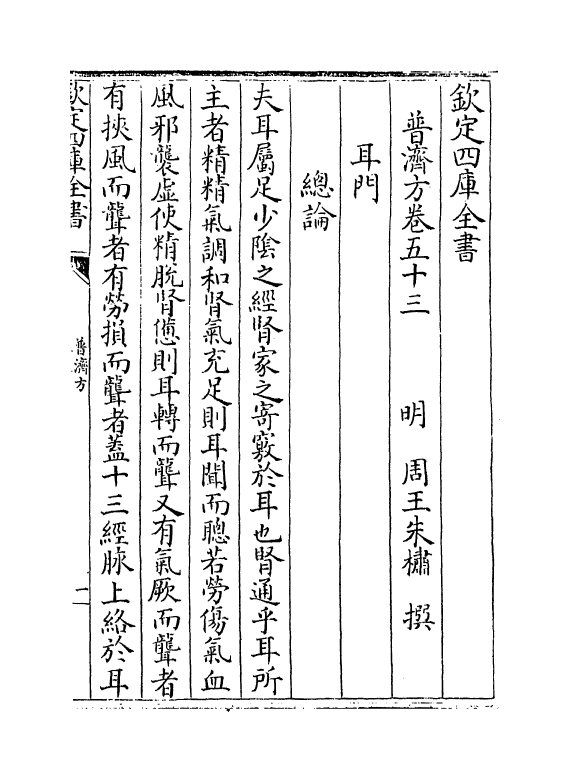 欽定四庫全書
普濟方卷五十三 明 周王朱橚 撰
耳門
總論
夫耳屬足少陰之經腎家之寄竅於耳也腎通乎耳所
主者精精氣調和腎氣充足則耳聞而聰若勞傷氣血
風邪襲虚使精脱腎憊則耳轉而聾又有氣厥而聾者
有挾風而聾者有勞損而聾者蓋十三經脉上絡於耳
欽定四庫全書
普濟方
二